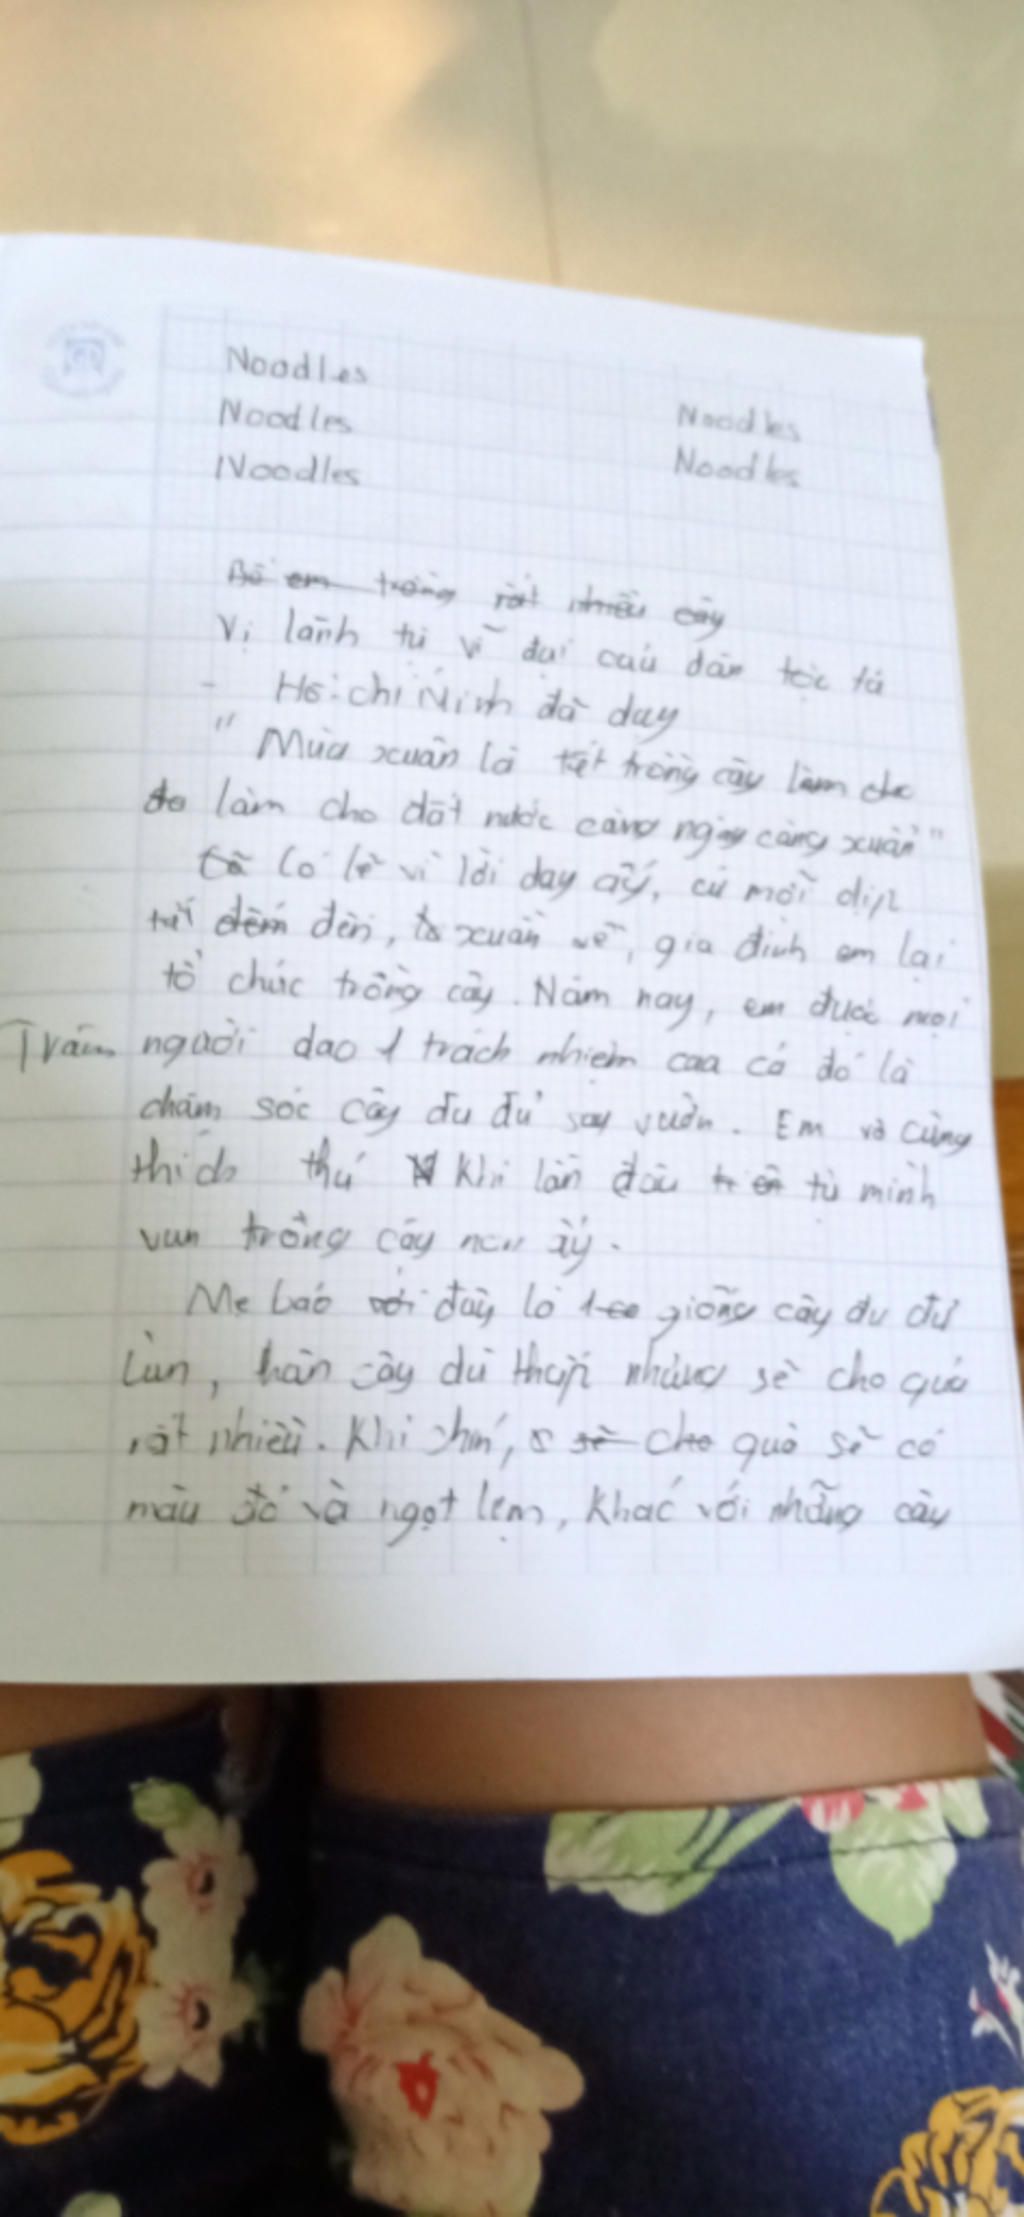 Noodles
Noodles Noodles
Noodles Noodles
Bố em trồng rất nhiều cây
Vị lãnh tụ vĩ đại của dân tộc ta
- Hồ Chí Minh đã dạy
" Mùa xuân là tết trồng cây làm cho
làm cho đất nước càng ngày càng xuân"
Có lẽ vì lời dạy ấy, cứ mỗi dịp
tết đến, xuân về, gia đình em lại
tổ chức trồng cây. Năm nay, em được mọi
người dao 1 trách nhiệm cao cả đó là
chăm sóc cây đu đủ sau vườn. Em vô cùng
thích thú khi lần đầu tiên tự mình
vun trồng cây non ấy.
Mẹ bảo đây là giống cây đu đủ
lùn, thân cây dù thấp nhưng sẽ cho quả
rất nhiều. Khi chín, quả sẽ có
màu đỏ và ngọt lịm, khác với những cây